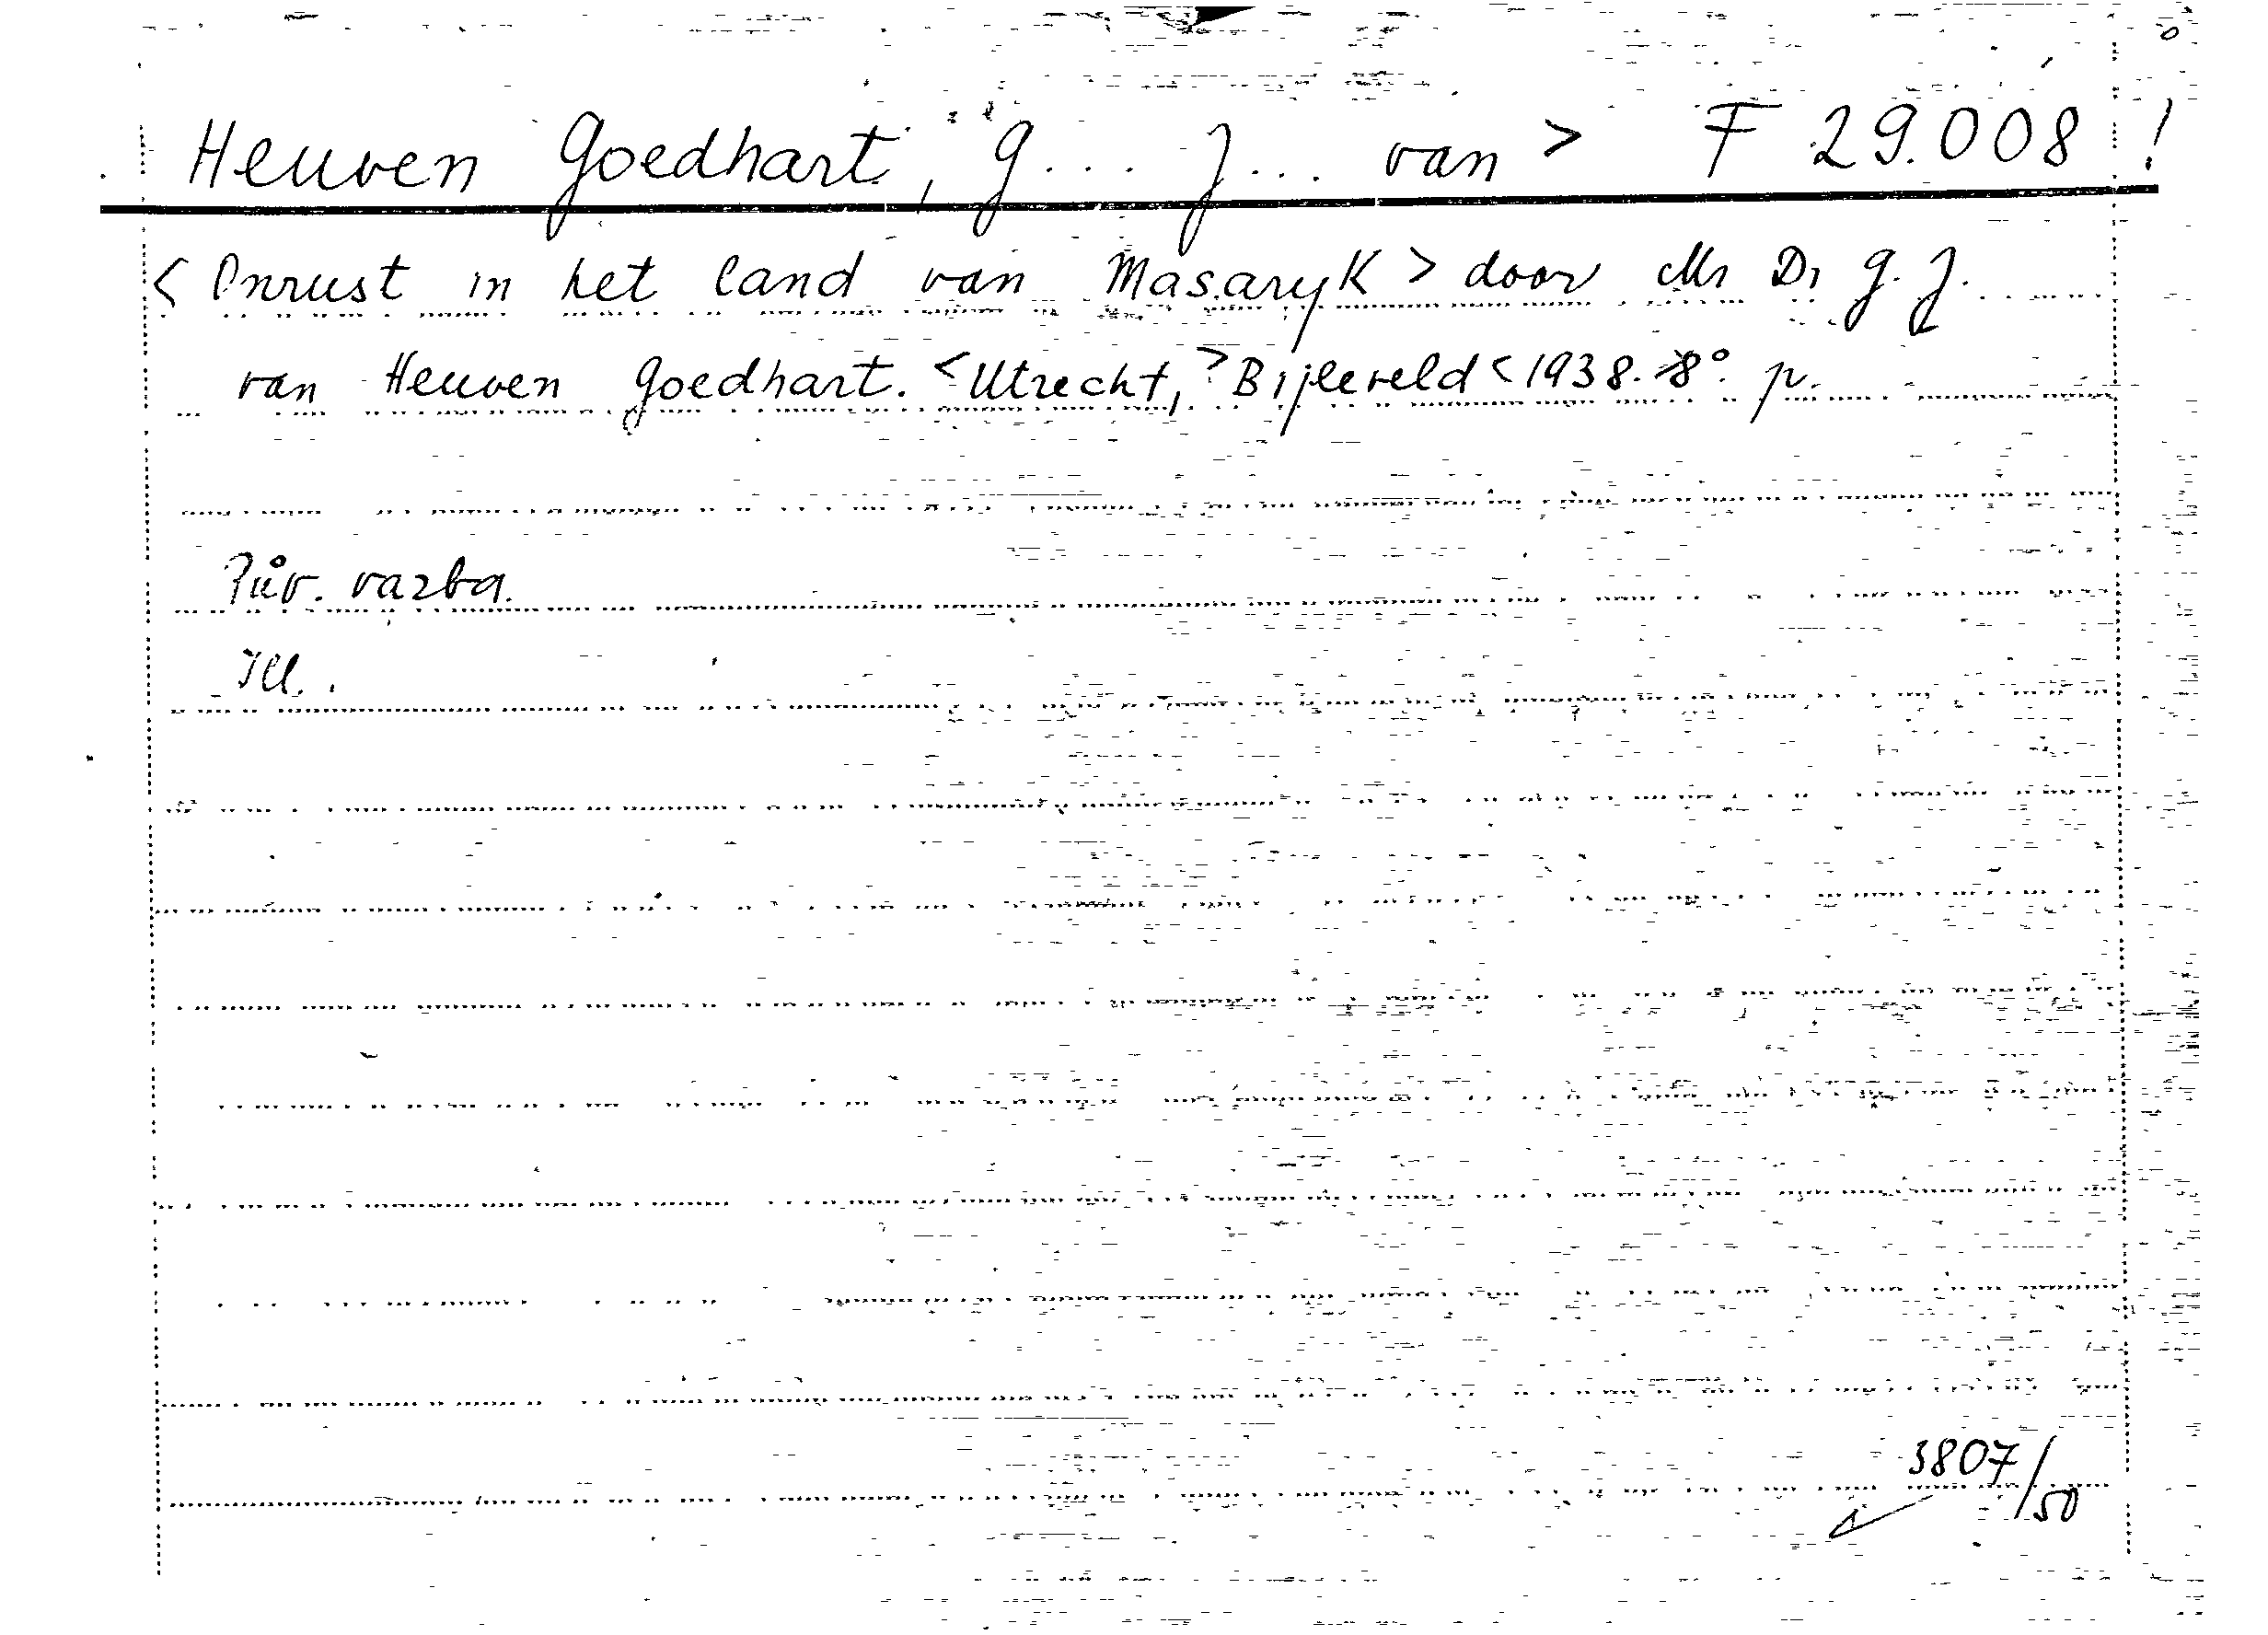 Heuven Goedhart, G... J... van > F 29.008 !
< Onrust in het land van Masaryk > door Mr Dr G. J.
van Heuven Goedhart. < Utrecht, > Bijleveld < 1938. 8°. p.
Pův. vazba.
Ill.
3807/50